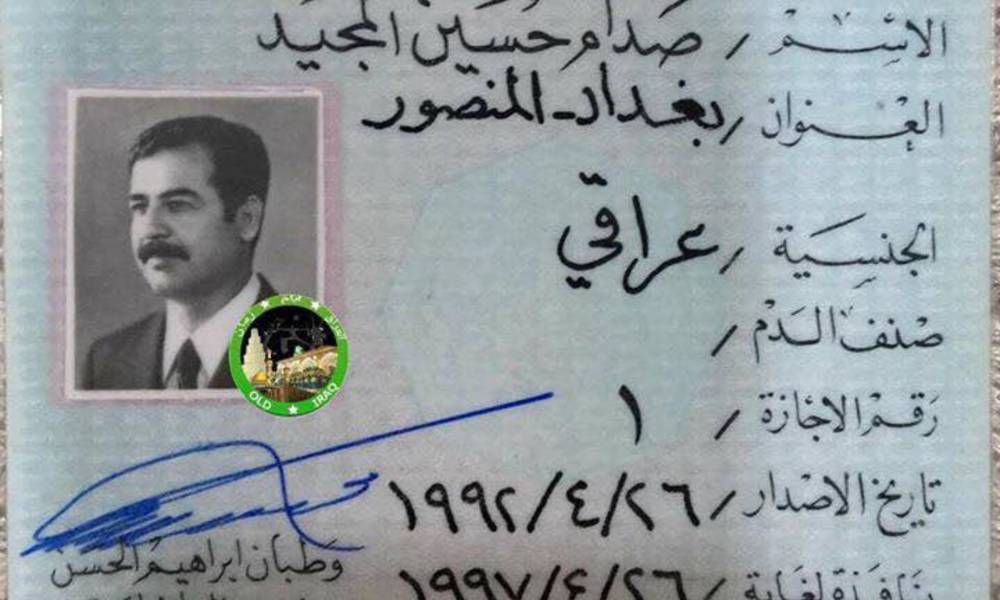 الاسم / صدام حسين المجيد
العنوان / بغداد - المنصور
الجنسية / عراقي
صنف الدم /
رقم الاجازة / ١
تاريخ الاصدار / ١٩٩٢/٤/٢٦
نافذة لغاية / ١٩٩٧/٤/٢٦
وطبان ابراهيم الحسن
العراق ★ ايام ★ زمان
OLD ★ IRAQ